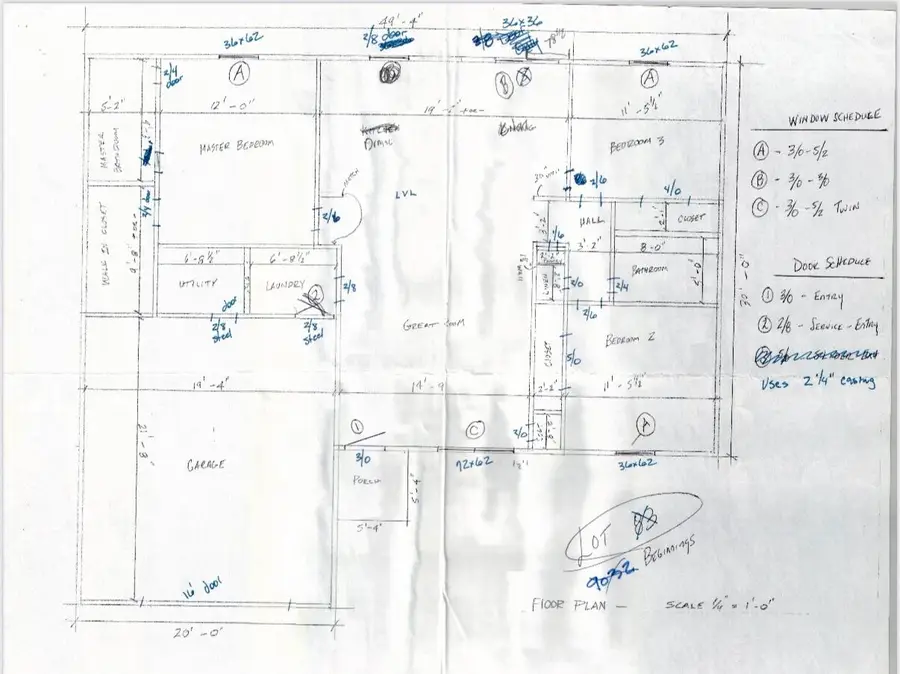 49'-4"
36x62
2/8 door
36x36
7'8 1/2
36x62
A
B
A
A
2/4
door
5'-2"
12'-0"
19'-
11'-5½"
WINDOW SCHEDULE
A - 3/0-5/2
B - 3/0-3/0
C - 3/0-5/2 TWIN
MASTER
BATHROOM
MASTER BEDROOM
KITCHEN
DINING
BEDROOM 3
LVL
2/6
4/0
2/6
WALK IN CLOSET
9'-8"
3'-2"
HALL
2'-1"
CLOSET
1/6
3'-2"
8'-0"
6'-8½"
6'-8½"
UTILITY
LAUNDRY
2
2/8
LINEN
2/0
2/4
BATHROOM
5'-0"
30'-0"
DOOR SCHEDULE
1 3/0 - ENTRY
2 2/8 - SERVICE-ENTRY
Uses 2 1/4" casing
door
2/8
steel
2/8
steel
GREAT ROOM
2/6
CLOSET
5/0
BEDROOM 2
19'-4"
14'-9
2'-2"
11'-5½"
21'-8"
1
C
2/0
A
GARAGE
3/0
72x62
1'2"
36x62
PORCH
5'-4"
5'-4"
LOT 83
9032 BEGINNINGS
16' door
FLOOR PLAN - SCALE ¼" = 1'-0"
20'-0"